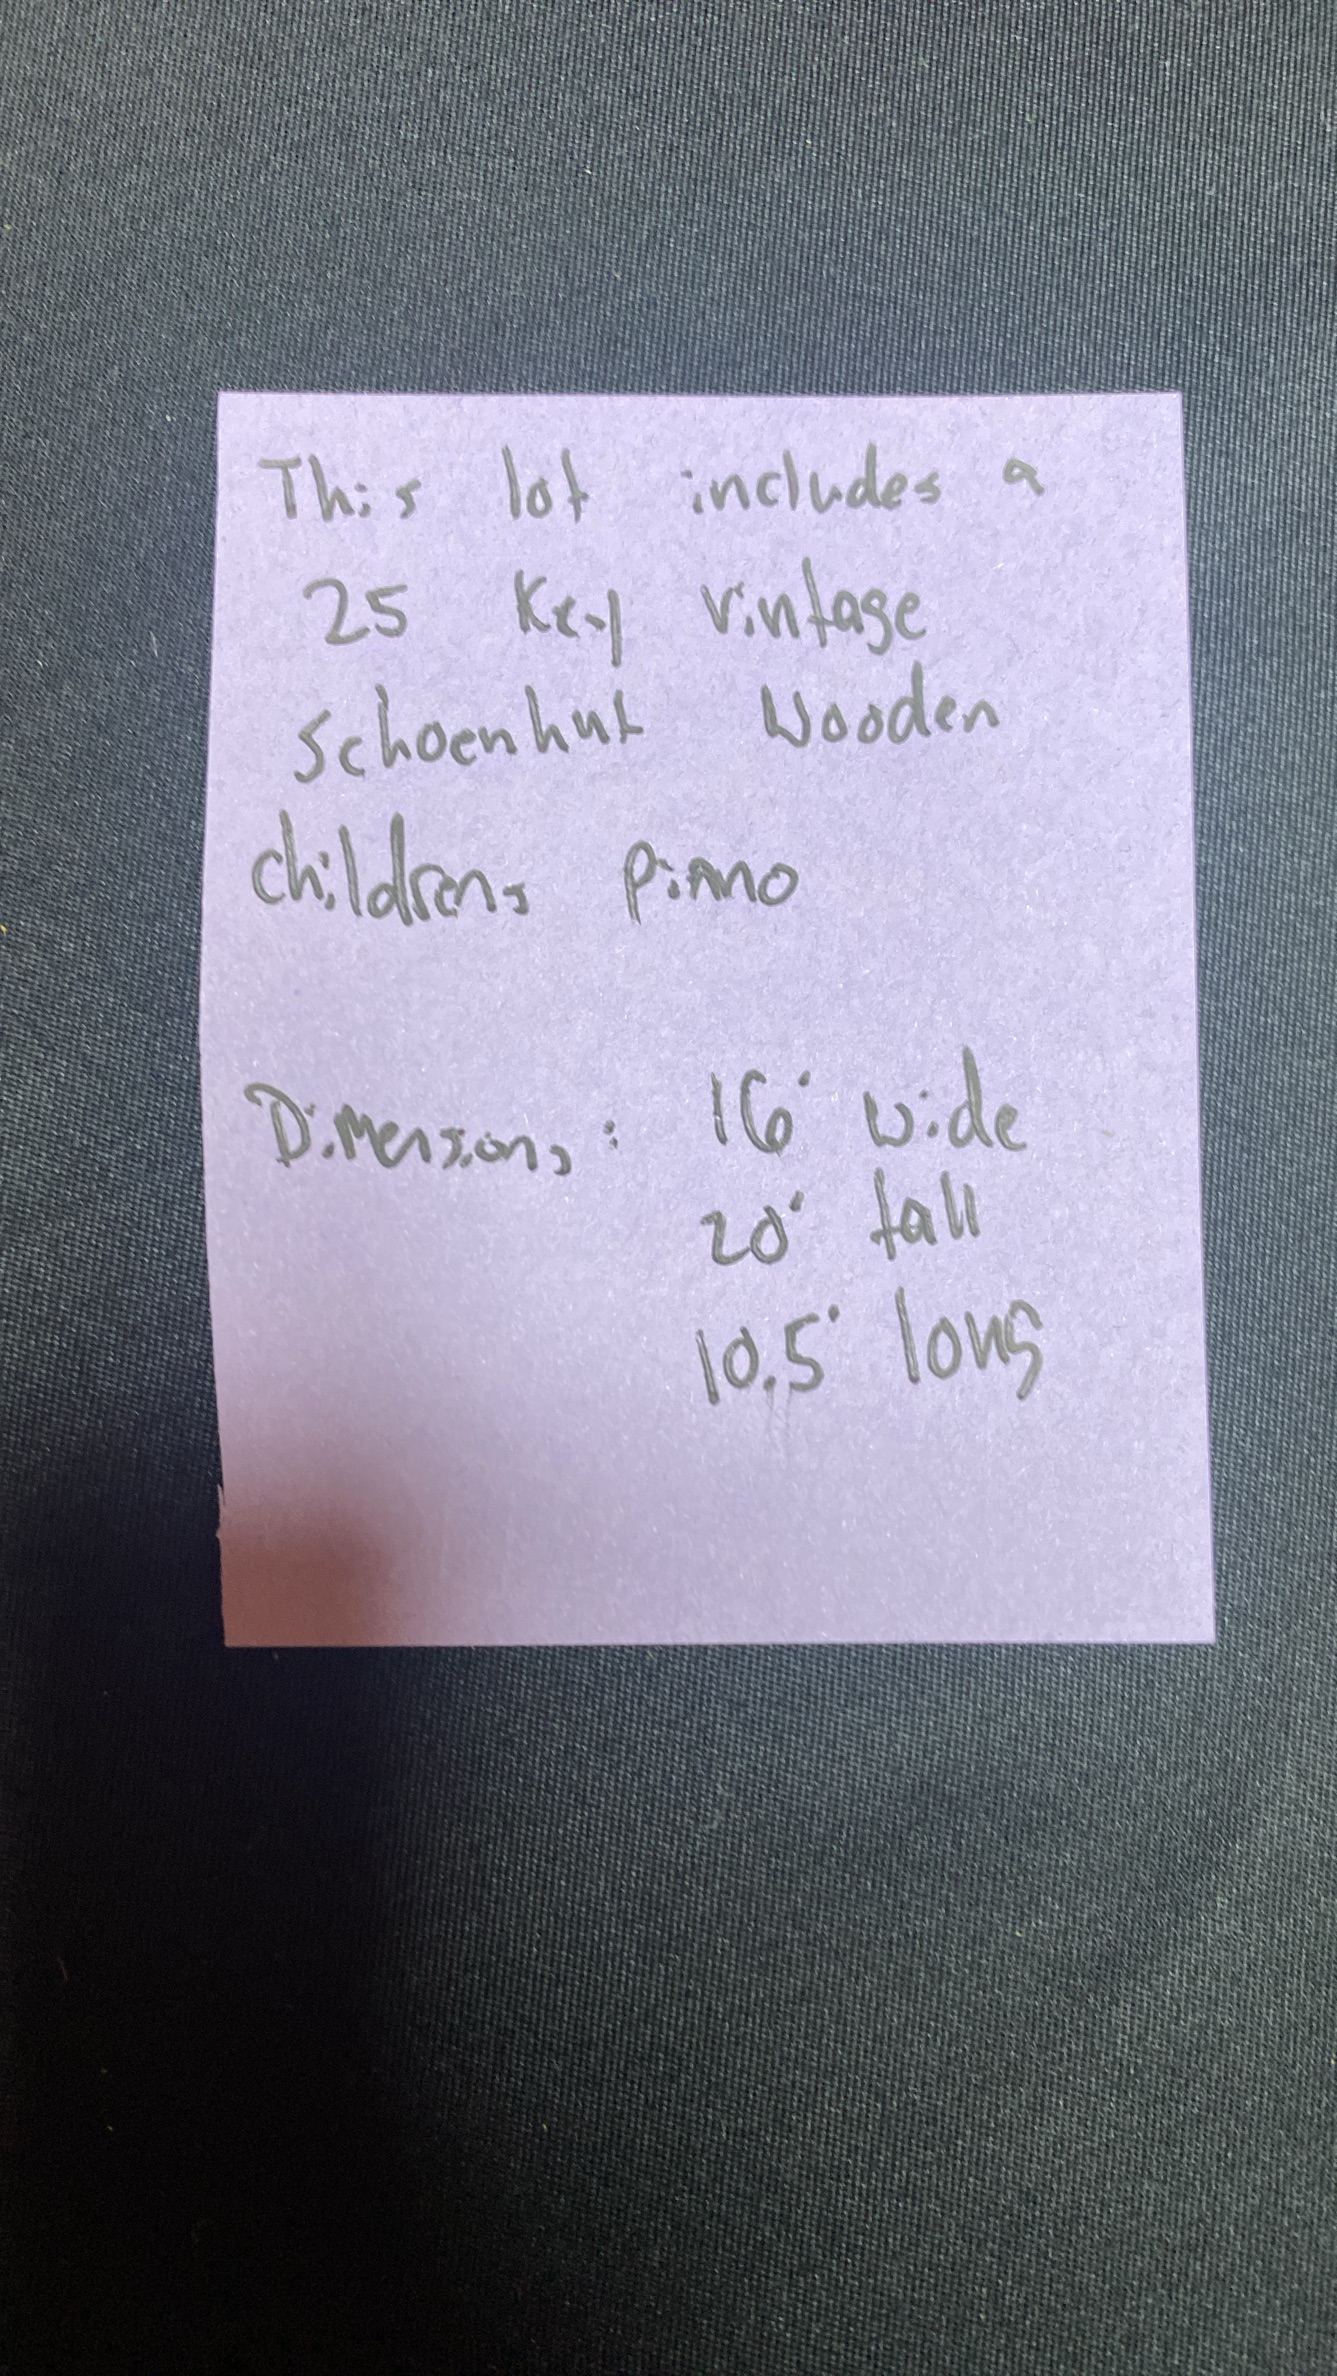 This lot includes a
25 Key vintage
Schoenhut Wooden
childrens piano
Dimensions: 16' wide
20' tall
10.5' long